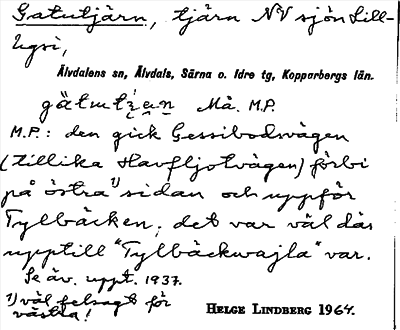 Gatutjärn, tjärn NV sjön Lill-
Ugsi,
Älvdalens sn, Älvdals, Särna o. Idre tg, Kopparbergs län.
gätutjen Må. M.P.
M.P.: den gick Gessibodsvägen
(tillika Havfljotvägen) förbi
på östra 1) sidan och uppför
Tylbäcken; det var väl där
upptill "Tylbäckwajla" var.
Se äv. uppt. 1937.
1) väl felsagt för
västra!
HELGE LINDBERG 1964.